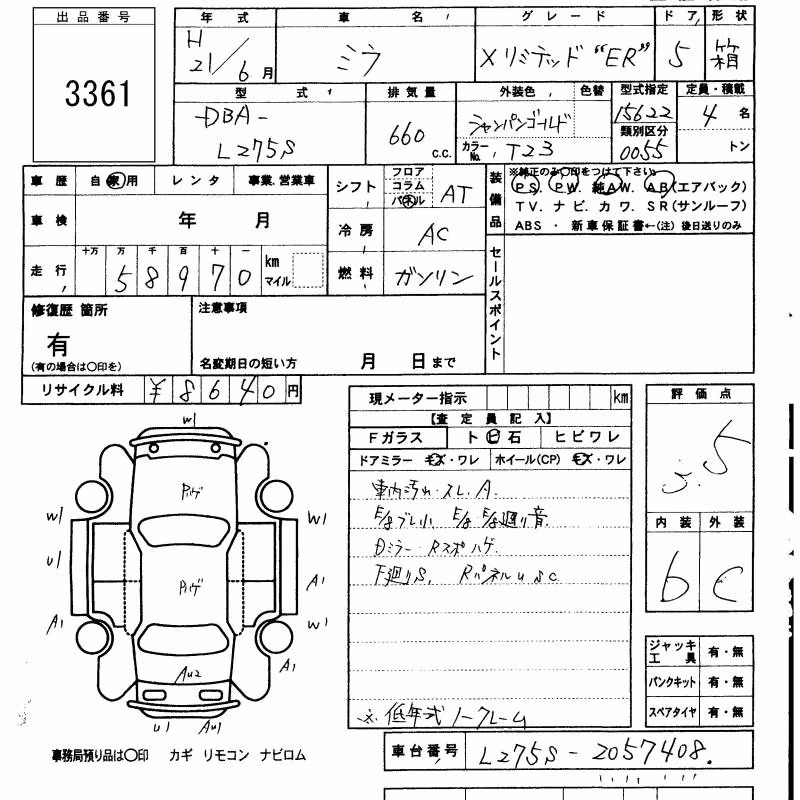 出品番号
3361
年式 車名 グレード ドア 形状
H21/6月 ミラ Xリミテッド "ER" 5 箱
型式 排気量 外装色 色替 型式指定 定員・積載
DBA-L275S 660 c.c. シャンパンゴールド 15622 4名
カラーNo. T23 類別区分 0055 トン
車歴 自家用 レンタ 事業.営業車
車検 年 月
走行 十万 万 千 百 十 一 km マイル
58970
シフト フロア コラム パネル AT
冷房 AC
燃料 ガソリン
装備品
※純正のみ〇印をつけて下さい
PS. PW. 純AW. AB(エアバック)
TV. ナビ. カワ. SR(サンルーフ)
ABS ・ 新車保証書←(注) 後日送りのみ
セールスポイント
修復歴 箇所
有
(有の場合は〇印を)
注意事項
名変期日の短い方 月 日まで
リサイクル料 ¥8640円
現メーター指示 km
【査定員記入】
Fガラス ト日石 ヒビワレ
ドアミラー キズ・ワレ ホイール(CP) キズ・ワレ
車内汚れ・スレ.A.
E/gブレ小 E/g E/g廻り音
Dミラー・Rスポハゲ
下廻りS, Rパネルusc
※低年式ノークレーム
評価点
3.5
内装 外装
b C
ジャッキ工具 有・無
パンクキット 有・無
スペアタイヤ 有・無
W1
ハゲ
W1 W1
U1
ハゲ
A1
A1 W1
AU2 A1
U1 AU1
事務局預り品は〇印 カギ リモコン ナビロム
車台番号 L275S-2057408.